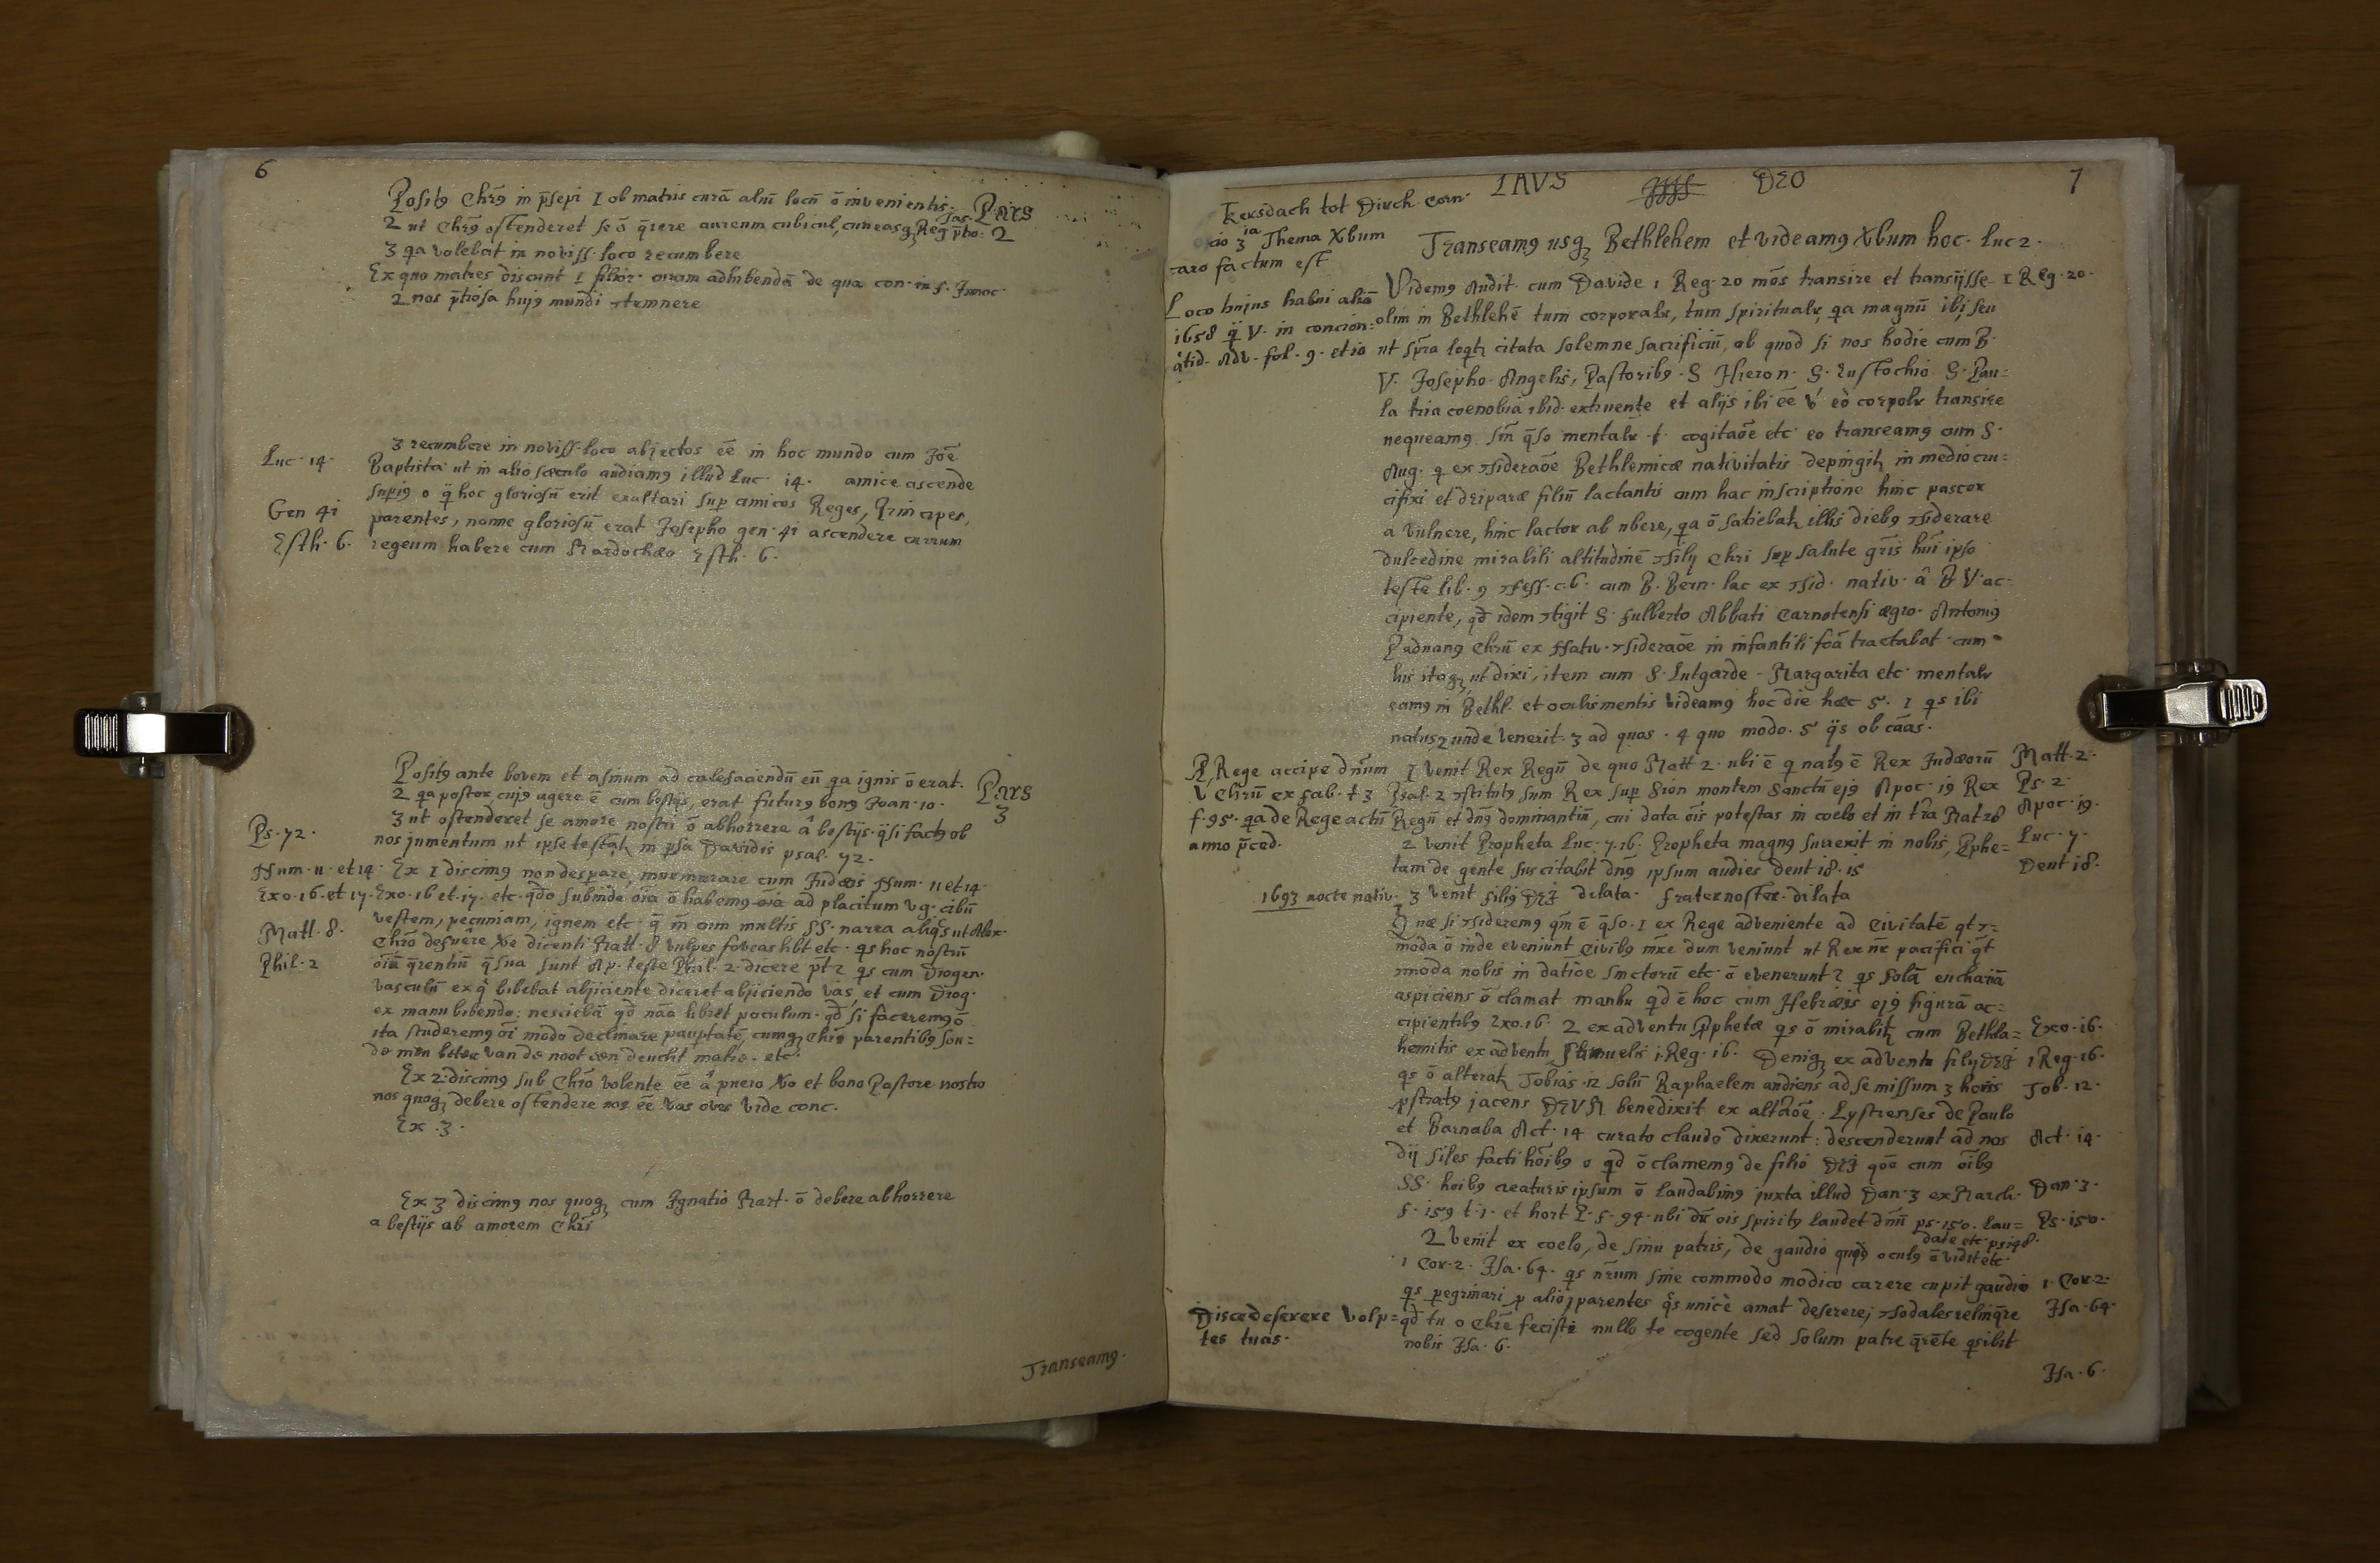 6
Positꝯ Chrꝯ in p̄sepi 1 ob matris curā aliū locū ō invenientis. Pars
2 ut Chrꝯ ostenderet se ō q̄rere aureum cubicul, cuneasqꝫ Reg 2
3 qa volebat in noviss. loco recumbere
Ex quo matres discunt 1 filior. curam adhibendā de qua con. in f. Innoc.
2 nos p̄tiosa hujꝯ mundi ꝯtemnere
3 recumbere in noviss. loco abjectos eē in hoc mundo cum Joē
Luc. 14. Baptista ut in alio sæculo audiamꝯ illud Luc. 14. amice ascende
supiꝯ o q̄ hoc gloriosū erit exaltari sup amicos Reges, Principes,
Gen 41 parentes, nonne gloriosū erat Josepho gen. 41 ascendere currum
Esth. 6. regeum habere cum Mardochæo Esth. 6.
Positꝯ ante bovem et asinum ad calefaciendū eū qa ignis ō erat. Pars
2 qa pastor, cujꝯ agere ē cum bestijs, erat futurꝯ bonꝯ Joan. 10. 3
3 ut ostenderet se amore nostri ō abhorrere â bestijs. q̄si factꝯ ob
Ps. 72. nos jumentum ut ipse testat in psa Davidis psal. 72.
Num. 11 et 14 Ex 1 discimꝯ non despare, murmurare cum Judæis Num. 11 et 14.
Exo. 16. et 17. Exo. 16 et. 17. etc. qdo subinde oīa ō habemꝯ oīa ad placitum vg. cibū
vestem, pecuniam, ignem etc. q̄ m̄ cum multis SS. narra aliqs ut Alex.
Matt. 8. Chrō defuēre Xo dicenti Matt. 8 vulpes foveas hbt etc. qs hoc nostrū
Phil. 2 oīū q̄rentiū q̄ sua sunt Ap. teste Phil. 2. dicere pt? qs cum Diogen.
vasculū ex q̊ bibebat abjiciente diceret abjiciendo vas, et cum Diog.
ex manu bibendo: nesciebā qd nāa hbret poculum. qd si faceremꝯ ō
ita studeremꝯ oī modo declinare pauptatē, cumqꝫ Chri parentibꝯ sou=
de men beter van de noot een deucht make. etc.
Ex 2. discimꝯ sub Chrō volente eē â puero Xo et bono Pastore nostro
nos quoqꝫ debere ostendere nos eē vas oves vide conc.
Ex. 3.
Ex 3 discimꝯ nos quoqꝫ cum Ignatio Mart. ō debere abhorrere
a bestijs ob amorem Chri
Transeamꝯ.
LAVS DEO 7
Kersdach tot Dirck corn.
cio 3ia Thema Xbum
caro factum est
Transeamꝯ usqꝫ Bethlehem et videamꝯ Xbum hoc. Luc 2.
Loco hujus habui aliā
1658 q̄ V. in concion.
ātid. Adv. fol. 9. et 10
Videmꝯ Audit. cum Davide 1 Reg. 20 mōs transire et transijsse 1 Reg. 20.
olim in Bethlehē tum corporalr, tum spiritualr, qa magnū ibi, seu
ut sp̄ra loqt citata solemne sacrificiū, ob quod si nos hodie cum B.
V. Josepho. Angelis, Pastoribꝯ. S Hieron. S. Eustochio S. Pau=
la tria coenobia ibid. extruente et alijs ibi eē v̄ eò corpolr transire
nequeamꝯ. sm̄ q̄so mentalr. f. cogitaōe etc. eo transeamꝯ cum S.
Aug. q ex ꝯsideraōe Bethlemicæ nativitatis depingit in medio cru=
cifixi et Deiparæ filiū lactantis cum hac inscriptione hinc pascor
a vulnere, hinc lactor ab ubere, qa ō satiebat illis diebꝯ ꝯsiderare
dulcedine mirabili altitudinē ꝯsilij Chri sup salute gn̄is hūi ipso
teste lib. 9 ꝯfess. c. 6. cum B. Bern. lac ex ꝯsid. nativ. â B V. ac=
cipiente, qd idem ꝯtigit S. Fulberto Abbati Carnotensi ægro. Antoniꝯ
Paduanꝯ Chrū ex Nativ. ꝯsideraōe in infantili foā tractabat. cum
his itaqꝫ ut dixi, item cum S. Lutgarde. Margarita etc. mentalr
eamꝯ in Bethl. et oculis mentis videamꝯ hoc die hæc 5. 1 qs ibi
natus 2 unde venerit. 3 ad quos. 4 quo modo. 5 q̄s ob cāas.
P, Rege accipe dn̄um
v Chrū ex fab. t 3
f. 95. qa de Rege actū
anno p̄ced.
1 Venit Rex Regū de quo Matt 2. ubi ē q natꝯ ē Rex Judæorū Matt. 2.
Psal. 2 ꝯstitutꝯ sum Rex sup Sion montem sanctū ejꝯ Apoc. 19 Rex Ps. 2
Regū et dnꝯ dominantiū, cui data oīs potestas in coelo et in tr̄a Mat 28 Apoc. 19.
2 venit Propheta Luc. 7. 16. Propheta magnꝯ surrexit in nobis, Pphe= Luc. 7.
tam de gente suscitabit dnꝯ ipsum audies Deut 18. 15 Deut 18.
1693 nocte nativ. 3 Venit filiꝯ DEI dilata. frater noster. dilata
Quæ si ꝯsideremꝯ qm̄ ē q̄so. 1 ex Rege adveniente ad Civitatē qt ꝯ=
moda ō inde eveniunt Civibꝯ m̄re dum veniunt ut Rex nr̄ pacifici q̄t
mmoda nobis in datioe sinctorū etc. ō evenerunt? qs solā euchariā
aspiciens ō clamat manhu qd ē hoc cum Hebræis ejꝯ figurā ac=
cipientibꝯ Exo. 16. 2 ex adventu Pphetæ qs ō mirabit cum Bethle= Exo. 16.
hemitis ex adventu Samuelis 1. Reg. 16. Deniqꝫ ex adventu filij DEI 1 Reg. 16.
qs ō alterat Tobias. 12 solū Raphaelem audiens ad se missum 3 horis Tob. 12.
pstratꝯ jacens DEUM benedixit ex altaōe. Lystrenses de Paulo
et Barnaba Act. 14 curato claudo dixerunt: descenderunt ad nos Act. 14.
dij siles facti hōibꝯ o qd ō clamemꝯ de filio DEI qōo cum oībꝯ
SS. hoibꝯ creaturis ipsum ō laudabimꝯ juxta illud Dan. 3 ex March. Dan. 3.
f. 159 t. 1. et hort P. f. 94. ubi dr̄ ois spiritꝯ laudet dnū ps. 150. Lau= Ps. 150.
date etc. ps 148.
2 Venit ex coelo, de sinu patris, de gaudio quod oculꝯ ō vidit etc.
1 Cor. 2. Isa. 64. qs nr̄um sine commodo modico carere cupit gaudio 1. Cor. 2.
qs pegrinari p alio, parentes q̊s unicè amat deserere, ꝯsodales relinq̄re Isa. 64.
Disce deserere volp=
tes tuas.
qd tu o Chrē fecisti nullo te cogente sed solum patre q̄rēte qs ibit
nobis Isa. 6.
Isa. 6.